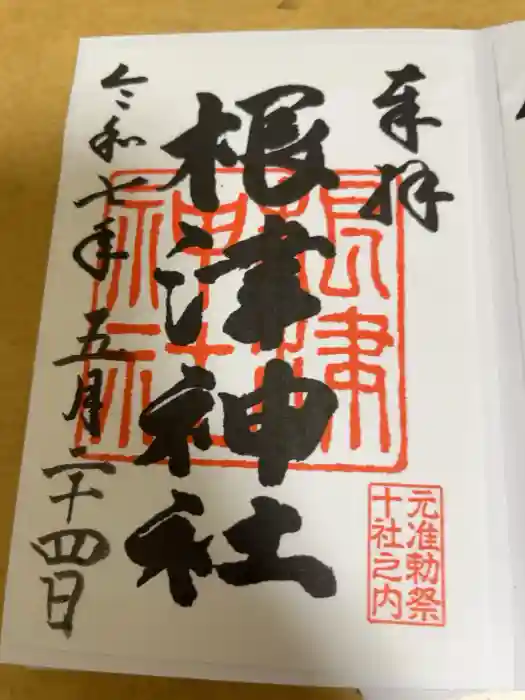 奉拝
根津神社
令和七年五月二十四日
根津
神社
元准勅祭
十社之内